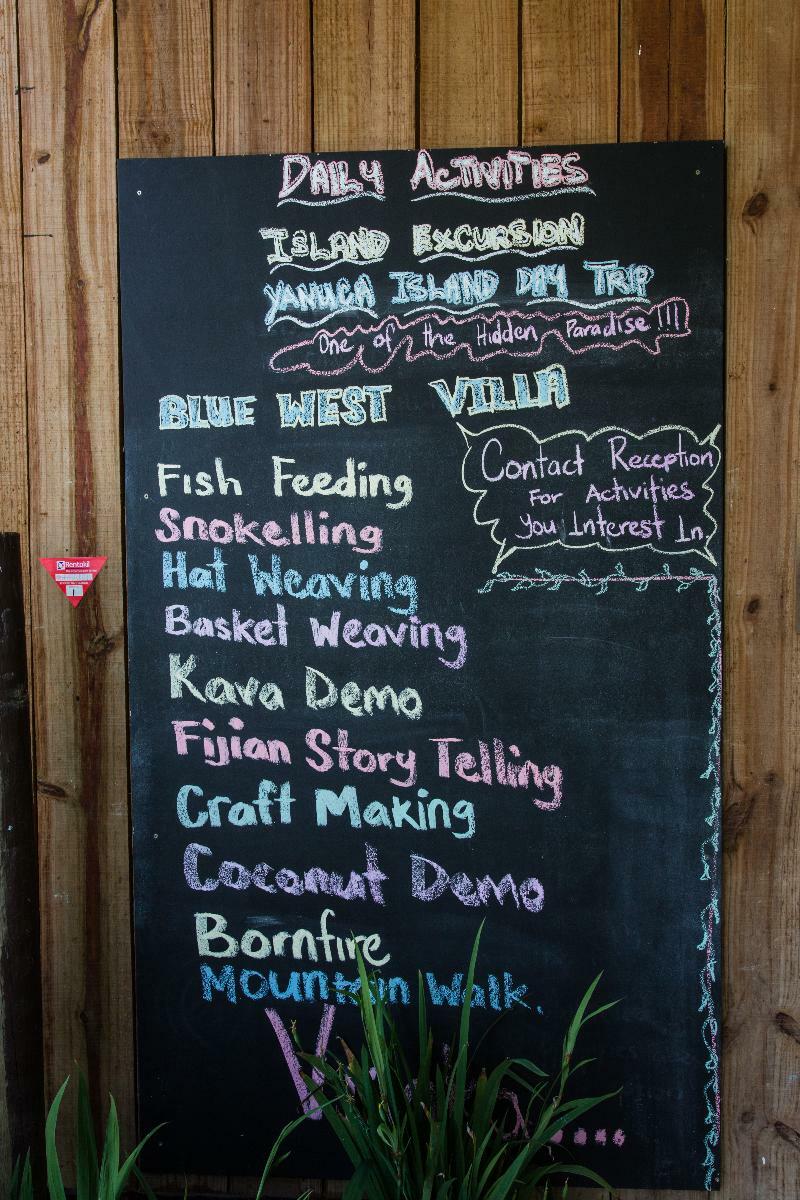 DAILY ACTIVITIES
ISLAND EXCURSION
YANUCA ISLAND DAY TRIP
One of the Hidden Paradise !!!
BLUE WEST VILLA
Contact Reception
For Activities
you Interest In
Fish Feeding
Snokelling
Hat Weaving
Basket Weaving
Kava Demo
Fijian Story Telling
Craft Making
Coconut Demo
Bornfire
Mountain Walk.
Rentokil
1